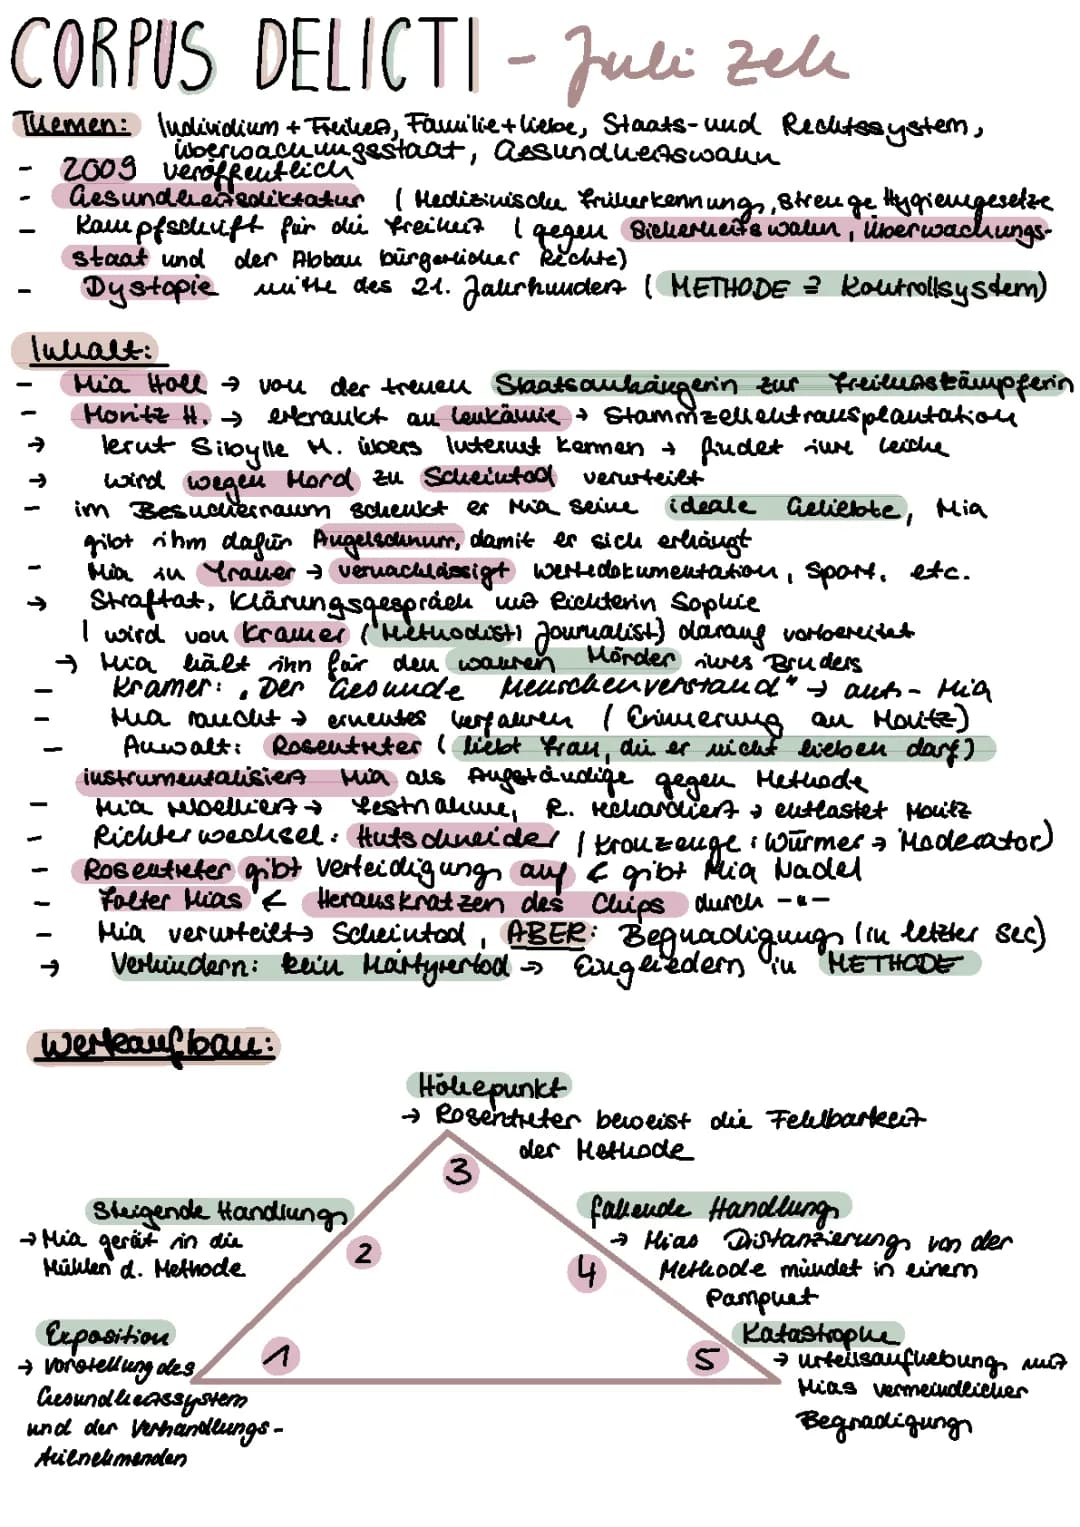 CORPUS DELICTI - Juli Zeh
Themen: Individium + Freiheit, Familie + Liebe, Staats- und Rechtssystem,
Überwachungsstaat, Gesundheitswahn
- 2009 veröffentlich
- Gesundheitsdiktatur (Medizinische Früherkennung, strenge Hygienegesetze
- Kampfschrift für die Freiheit (gegen Sicherheitswahn, Überwachungs-
staat und der Abbau bürgerlicher Rechte)
- Dystopie mitte des 21. Jahrhundert (METHODE ≙ Kontrollsystem)
Inhalt:
- Mia Holl → von der treuen Staatsanhängerin zur Freiheitskämpferin
- Moritz H. → erkrankt an Leukämie → Stammzellentransplantation
→ lernt Sibylle M. übers Internet kennen → findet ihre Leiche
→ wird wegen Mord zu Scheintod verurteilt
- im Besucherraum schenkt er Mia seine ideale Geliebte, Mia
gibt ihm dafür Angelschnur, damit er sich erhängt
- Mia in Trauer → vernachlässigt Wertedokumentation, Sport, etc.
→ Straftat, Klärungsgespräch mit Richterin Sophie
( wird von Kramer (Methodist, Journalist) darauf vorbereitet
→ Mia hält ihn für den wahren Mörder ihres Bruders
- Kramer: "Der Gesunde Menschenverstand" → anti-Mia
- Mia raucht → erneutes Verfahren (Erinnerung an Moritz)
- Anwalt: Rosentreter (liebt Frau, die er nicht lieben darf)
instrumentalisiert Mia als Angeständige gegen Methode
- Mia rebelliert → Festnahme, R. rechardiert → entlastet Moritz
- Richterwechsel: Hutschneider (Kronzeuge: Würmer → Moderator)
- Rosentreter gibt Verteidigung auf & gibt Mia Nadel
- Folter Mias & Herauskratzen des Chips durch -"-
- Mia verurteilt → Scheintod, ABER: Begnadigung (in letzter sec)
→ Verhindern: kein Märtyrertod → Eingliedern in METHODE
Werkaufbau:
Höhepunkt
→ Rosentreter beweist die Fehlbarkeit
der Methode
3
Steigende Handlung
→ Mia gerät in die
Mühlen d. Methode
2
fallende Handlung
→ Mias Distanzierung von der
Methode mündet in einem
Pamphet
4
Exposition
→ Vorstellung des
Gesundheitssystem
und der Verhandlungs-
teilnehmenden
1
Katastrophe
→ Urteilsaufhebung mit
Mias vermeindlicher
Begnadigung
5